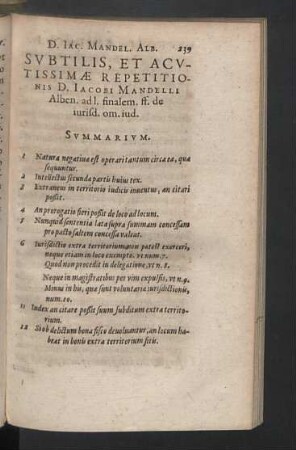 D. IAC. MANDEL. ALB. 239
SVBTILIS, ET ACV-
TISSIMÆ REPETITIO-
NIS D. IACOBI MANDELLI
Alben. ad l. finalem. ff. de
iurisd. om. iud.
SVMMARIVM.
1 Natura negatiuæ est operari tantum circa ea, quæ
sequuntur.
2 Intellectus secunda partis huius tex.
3 Extraneus in territorio iudicis inuentus, an citari
possit.
4 An prorogatio fieri possit de loco ad locum.
5 Nunquid sententia lata supra summam concessam
pro pacto saltem concessa valeat.
6 Iurisdictio extra territorium an in potest exerceri,
neque etiam in loco exempto. vt num. 7.
Quod non procedit in delegatione. vt n. 8.
Neque in magistratibus per vim expulsis, vt n. 9.
Minus in his, quæ sunt voluntariæ iurisdictionis,
num. 10.
11 Iudex an citare possit suum subditum extra territo-
rium.
12 Si ob delictum bona fisco deuoluantur, an locum ha-
beat in bonis extra territorium sitis.